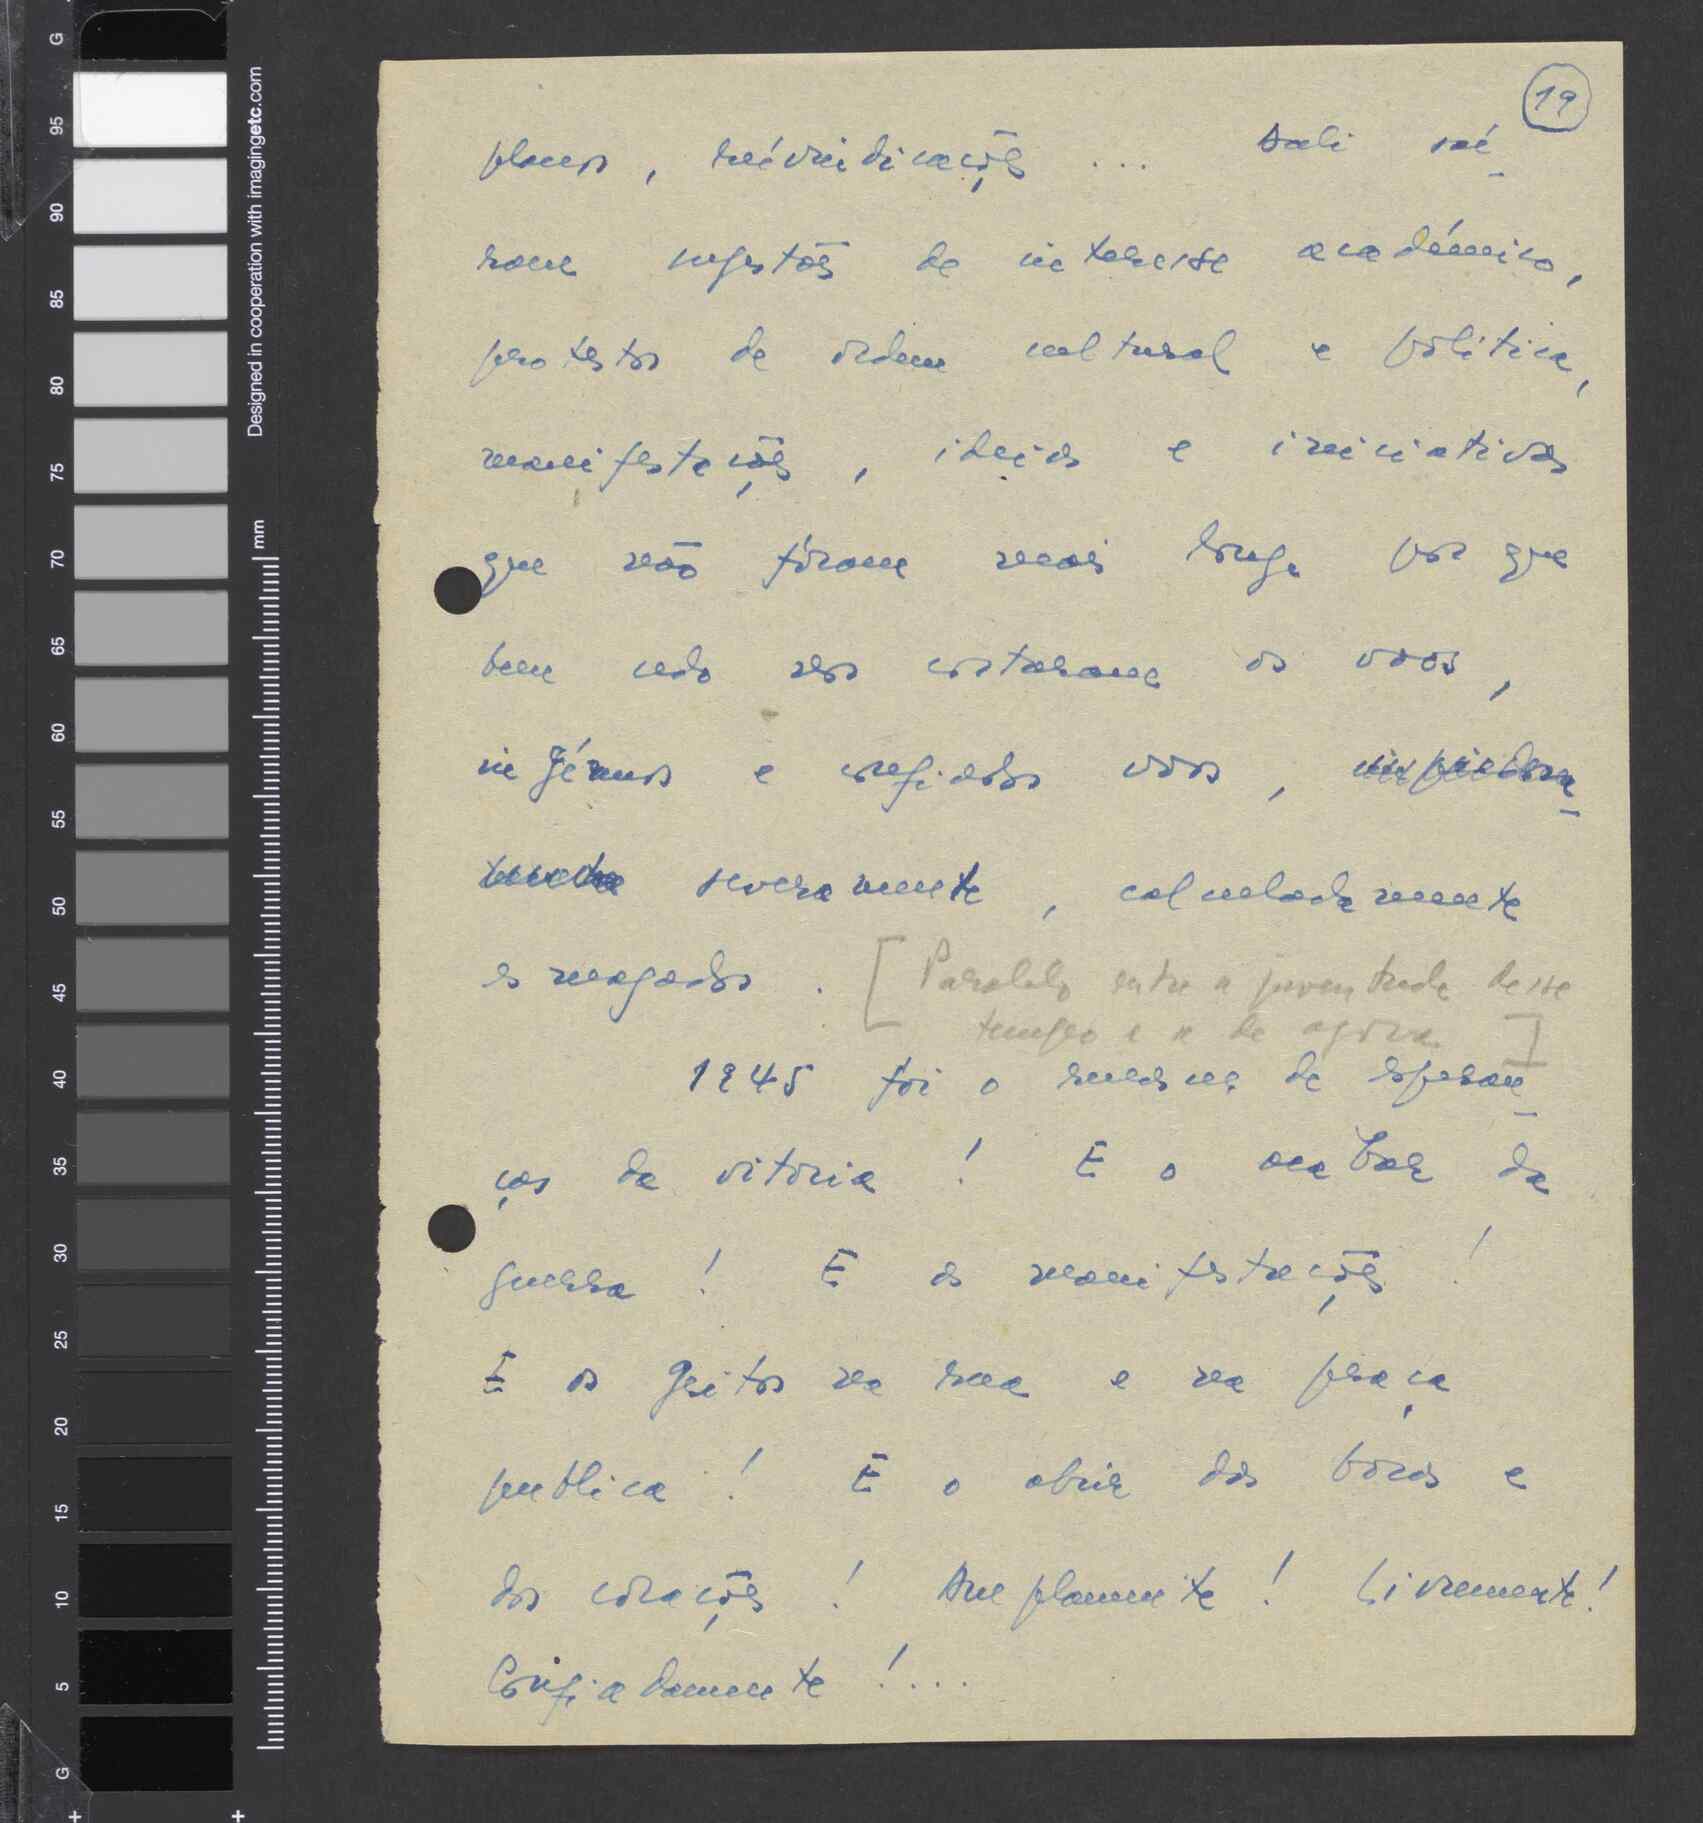 19
planos, reivindicações ... Dali saí-
ram sugestões de interesse académico,
protestos de ordem cultural e politica,
manifestações, ideias e iniciativas
que não fôram mais longe por que
bem cedo nos cortaram os voos,
ingénuos e confiados voos,
severamente, calculadamente
esmagados. [Paralelo entre a juventude desse
tempo e a de agora]
1945 foi o de esperan-
ças da vitoria! E o acabar da
guerra! E as manifestações!
E os gritos na rua e na praça
publica! E o abrir das bocas e
dos corações! Amplamente! Livremente!
Confiadamente!...
Designed in cooperation with imagingetc.com
mm
G
95
90
85
80
75
70
65
60
55
50
45
40
35
30
25
20
15
10
5
G